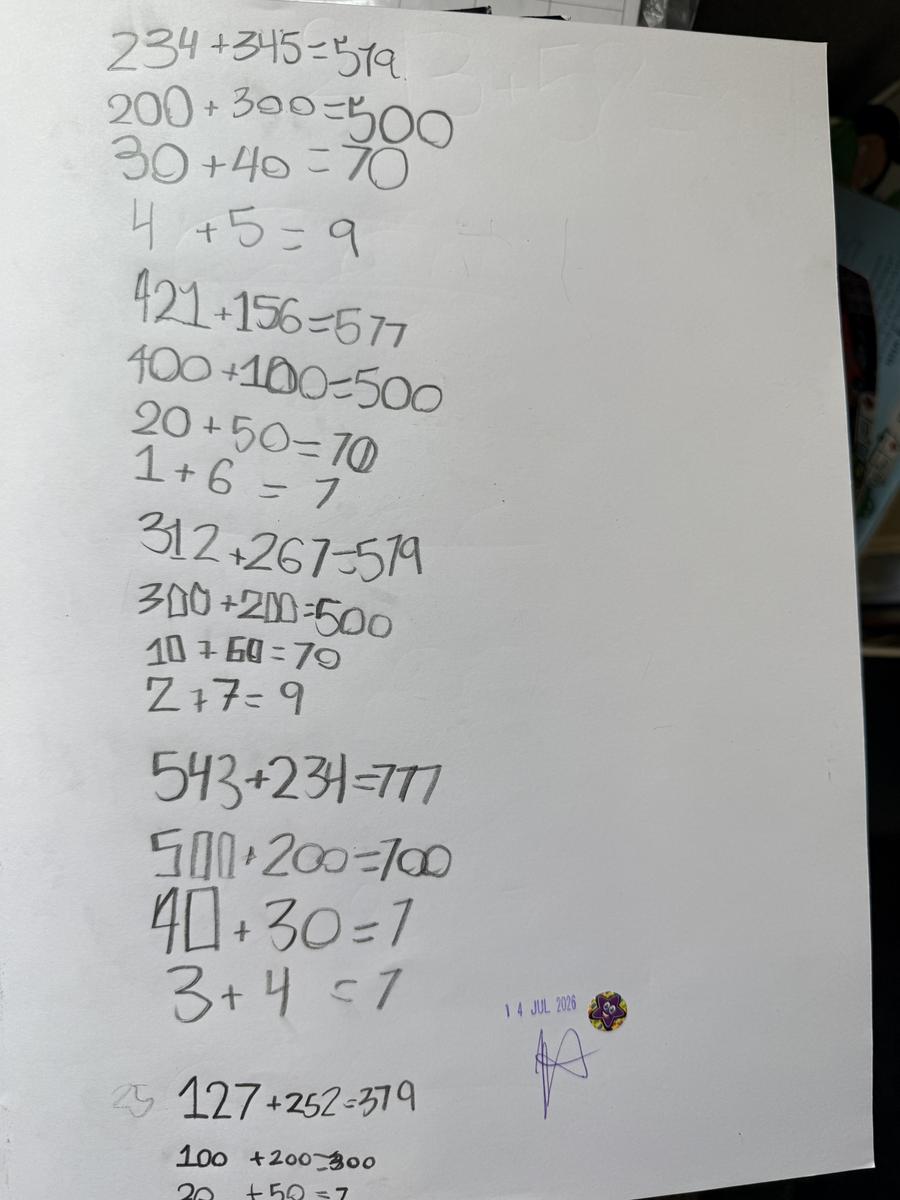 234+345=579
200+300=500
30+40=70
4+5=9
421+156=577
400+100=500
20+50=70
1+6=7
312+267=579
300+200=500
10+60=70
2+7=9
543+234=777
500+200=700
40+30=7
3+4=7
14 JUL 2026
25 127+252=379
100+200=300
20+50=7